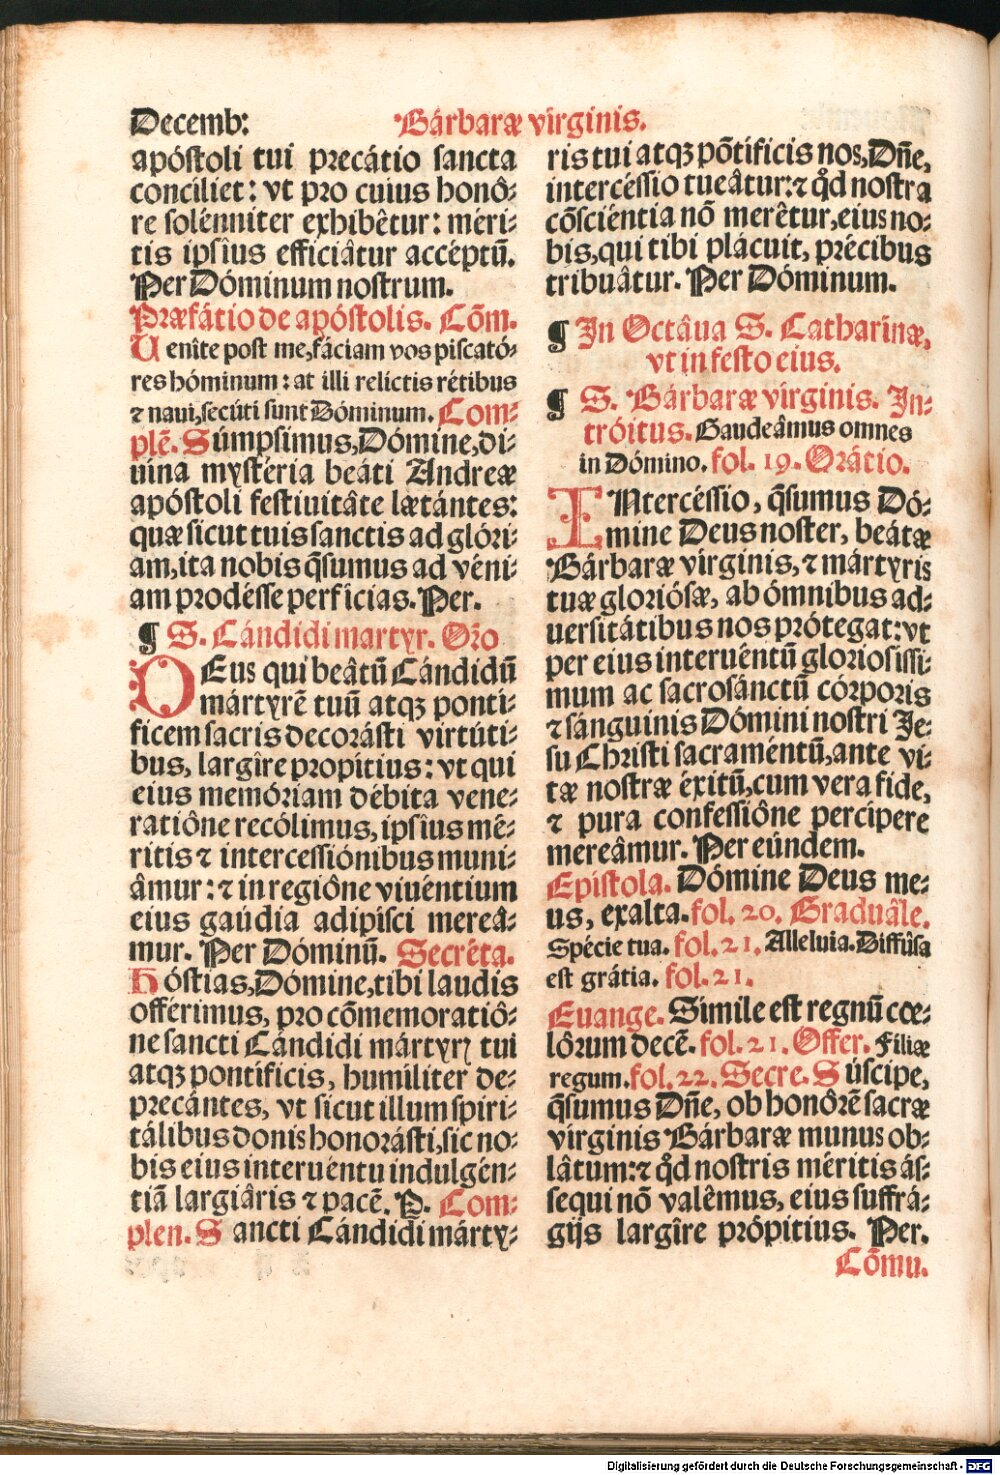 Decemb:
Bárbaræ virginis.
apóstoli tui precátio sancta
conciliet: vt pro cuius honô-
re solénniter exhibêtur: méri-
tis ipsîus efficiâtur accéptũ.
Per Dóminum nostrum.
Præfátio de apóstolis. Cõm.
Uenîte post me, fáciam vos piscató-
res hóminum: at illi relictis rétibus
⁊ naui, secúti sunt Dóminum. Com-
plẽ. Súmpsimus, Dómine, di-
uína mystéria beáti Andreæ
apóstoli festiuitâte lætántes:
quæ sicut tuis sanctis ad glóri-
am, ita nobis q̃sumus ad véni-
am prodésse perficias. Per.
¶ S. Cándidi martyr. Orõ
DEus qui beâtũ Cándidũ
mártyrẽ tuũ atqꝫ ponti-
ficem sacris decorásti virtúti-
bus, largîre propítius: vt qui
eius memóriam débita vene-
ratiône recólimus, ipsîus mé-
ritis ⁊ intercessiónibus muni-
âmur: ⁊ in regiône viuéntium
eius gaúdia adipísci mereâ-
mur. Per Dóminũ. Secréta.
Hóstias, Dómine, tibi laudis
offérimus, pro cõmemoratiô-
ne sancti Cándidi mártyrꝭ tui
atqꝫ pontíficis, humíliter de-
precántes, vt sicut illum spiri-
tálibus donis honorásti, sic no-
bis eius interuéntu indulgén-
tiã largiâris ⁊ pacẽ. P. Com-
plen. Sancti Cándidi márty-
ris tui atqꝫ põtíficis nos, Dñe,
intercéssio tueâtur: ⁊ qd̃ nostra
cõsciéntia nõ merêtur, eius no-
bis, qui tibi plácuit, précibus
tribuâtur. Per Dóminum.
¶ In Octâua S. Catharinæ,
vt in festo eius.
¶ S. Bárbaræ vírginis. In-
tróitus. Gaudeâmus omnes
in Dómino. fol. 19. Orátio.
INtercéssio, q̃sumus Dó-
mine Deus noster, beátæ
Bárbaræ vírginis, ⁊ mártyris
tuæ gloriósæ, ab ómnibus ad-
uersitátibus nos prótegat: vt
per eius interuéntũ gloriosissi-
mum ac sacrosánctũ córporis
⁊ sánguinis Dómini nostri Je-
su Christi sacraméntũ, ante vi-
tæ nostræ éxitũ, cum vera fide,
⁊ pura confessiône percípere
mereâmur. Per eúndem.
Epistola. Dómine Deus me-
us, exalta. fol. 20. Graduâle.
Spécie tua. fol. 21. Alleluia. Diffûsa
est grátia. fol. 21.
Euange. Simile est regnũ cœ-
lôrum decẽ. fol. 21. Offer. Filiæ
regum. fol. 22. Secre. Súscipe,
q̃sumus Dñe, ob honôrẽ sacræ
vírginis Bárbaræ munus ob-
lâtum: ⁊ qd̃ nostris méritis ás-
sequi nõ valêmus, eius suffrá-
gijs largîre própitius. Per.
Cõmu.
Digitalisierung gefördert durch die Deutsche Forschungsgemeinschaft - DFG